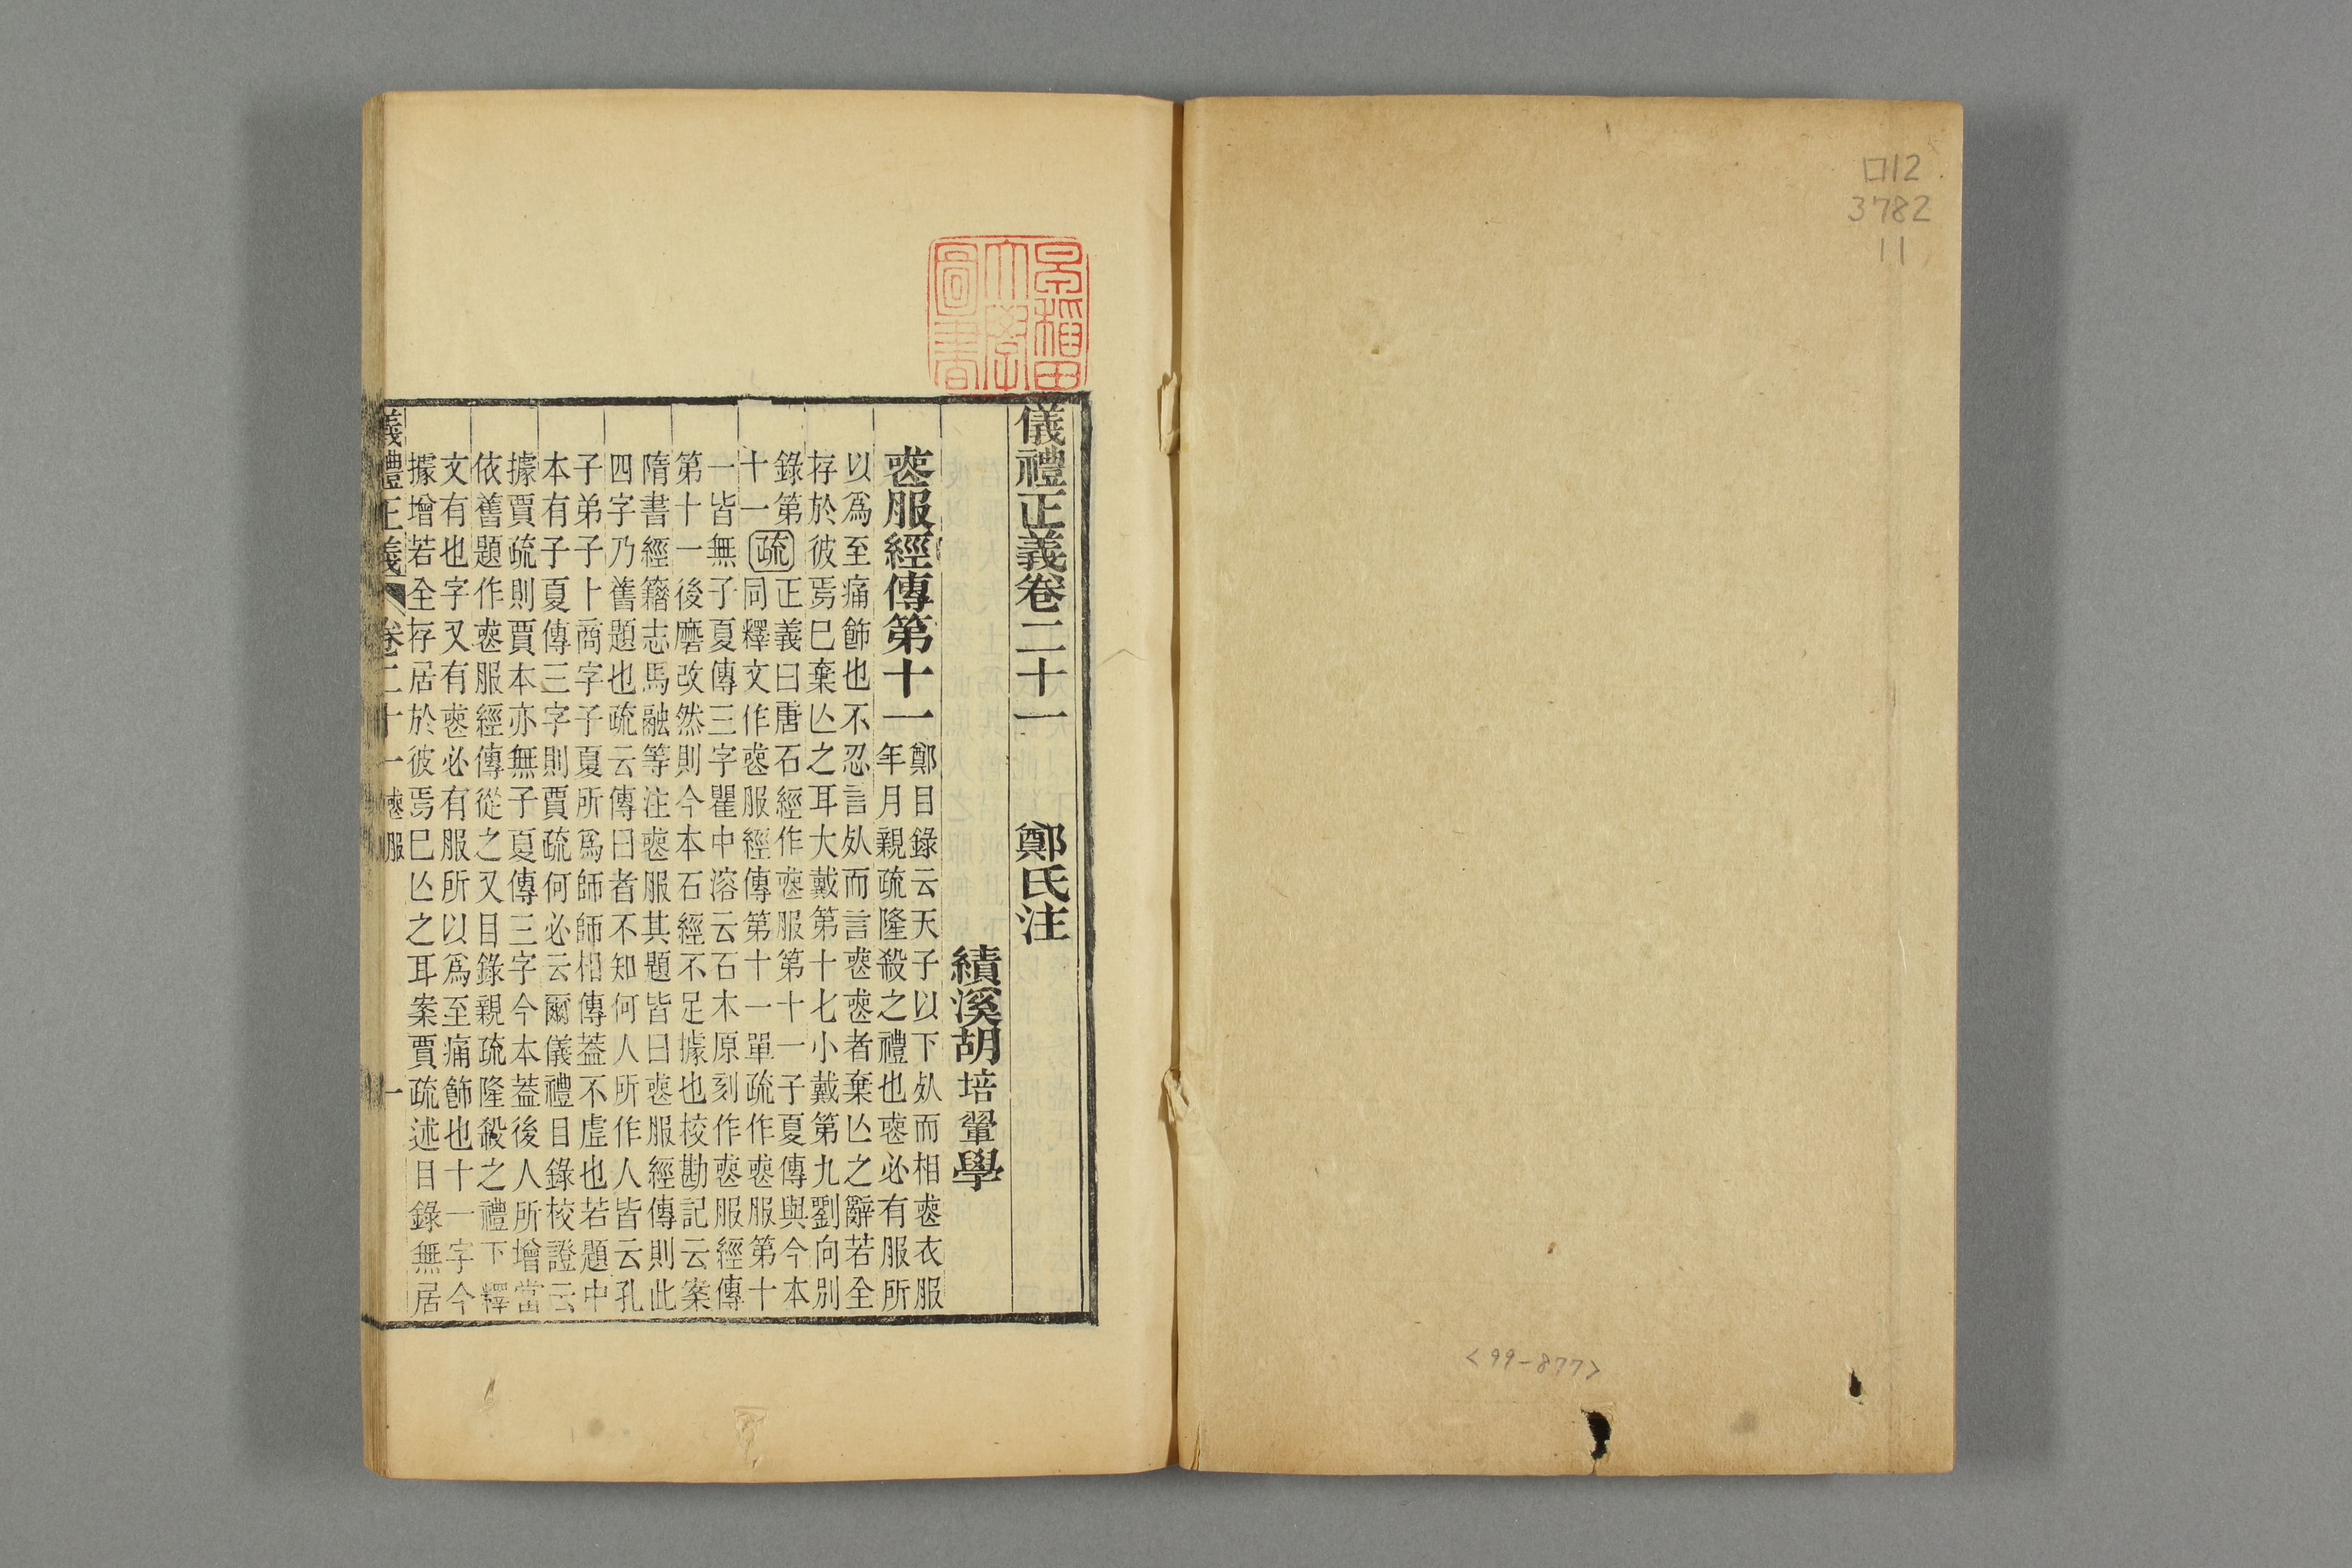 口12
3782
11
<99-877>
早稲田大學圖書
儀禮正義卷二十一　鄭氏注
績溪胡培翬學
喪服經傳第十一　鄭目錄云天子以下死而相喪衣服
年月親疏隆殺之禮也喪必有服所
以爲至痛飾也不忍言死而言喪喪者棄亾之辭若全
存於彼焉巳棄亾之耳大戴第十七小戴第九劉向別
錄第十一
疏
正義曰唐石經作喪服第十一子夏傳與今本
同釋文作喪服經傳第十一單疏作喪服第十
一皆無子夏傳三字瞿中溶云石木原刻作喪服經傳
第十一後磨改然則今本石經不足據也校勘記云案
隋書經籍志馬融等注喪服其題皆曰喪服經傳則此
四字乃舊題也疏云傳曰者不知何人所作人皆云孔
子弟子卜商字子夏所爲師師相傳葢不虛也若題中
本有子夏傳三字則賈疏何必云爾儀禮目錄校證云
據賈疏則賈本亦無子夏傳三字今本葢後人所增當
依舊題作喪服經傳從之又目錄親疏隆殺之禮下釋
文有也字又有喪必有服所以爲至痛飾也十一字今
據增若全存居於彼焉巳亾之耳案賈疏述目錄無居
儀禮正義　卷二十一　喪服　一